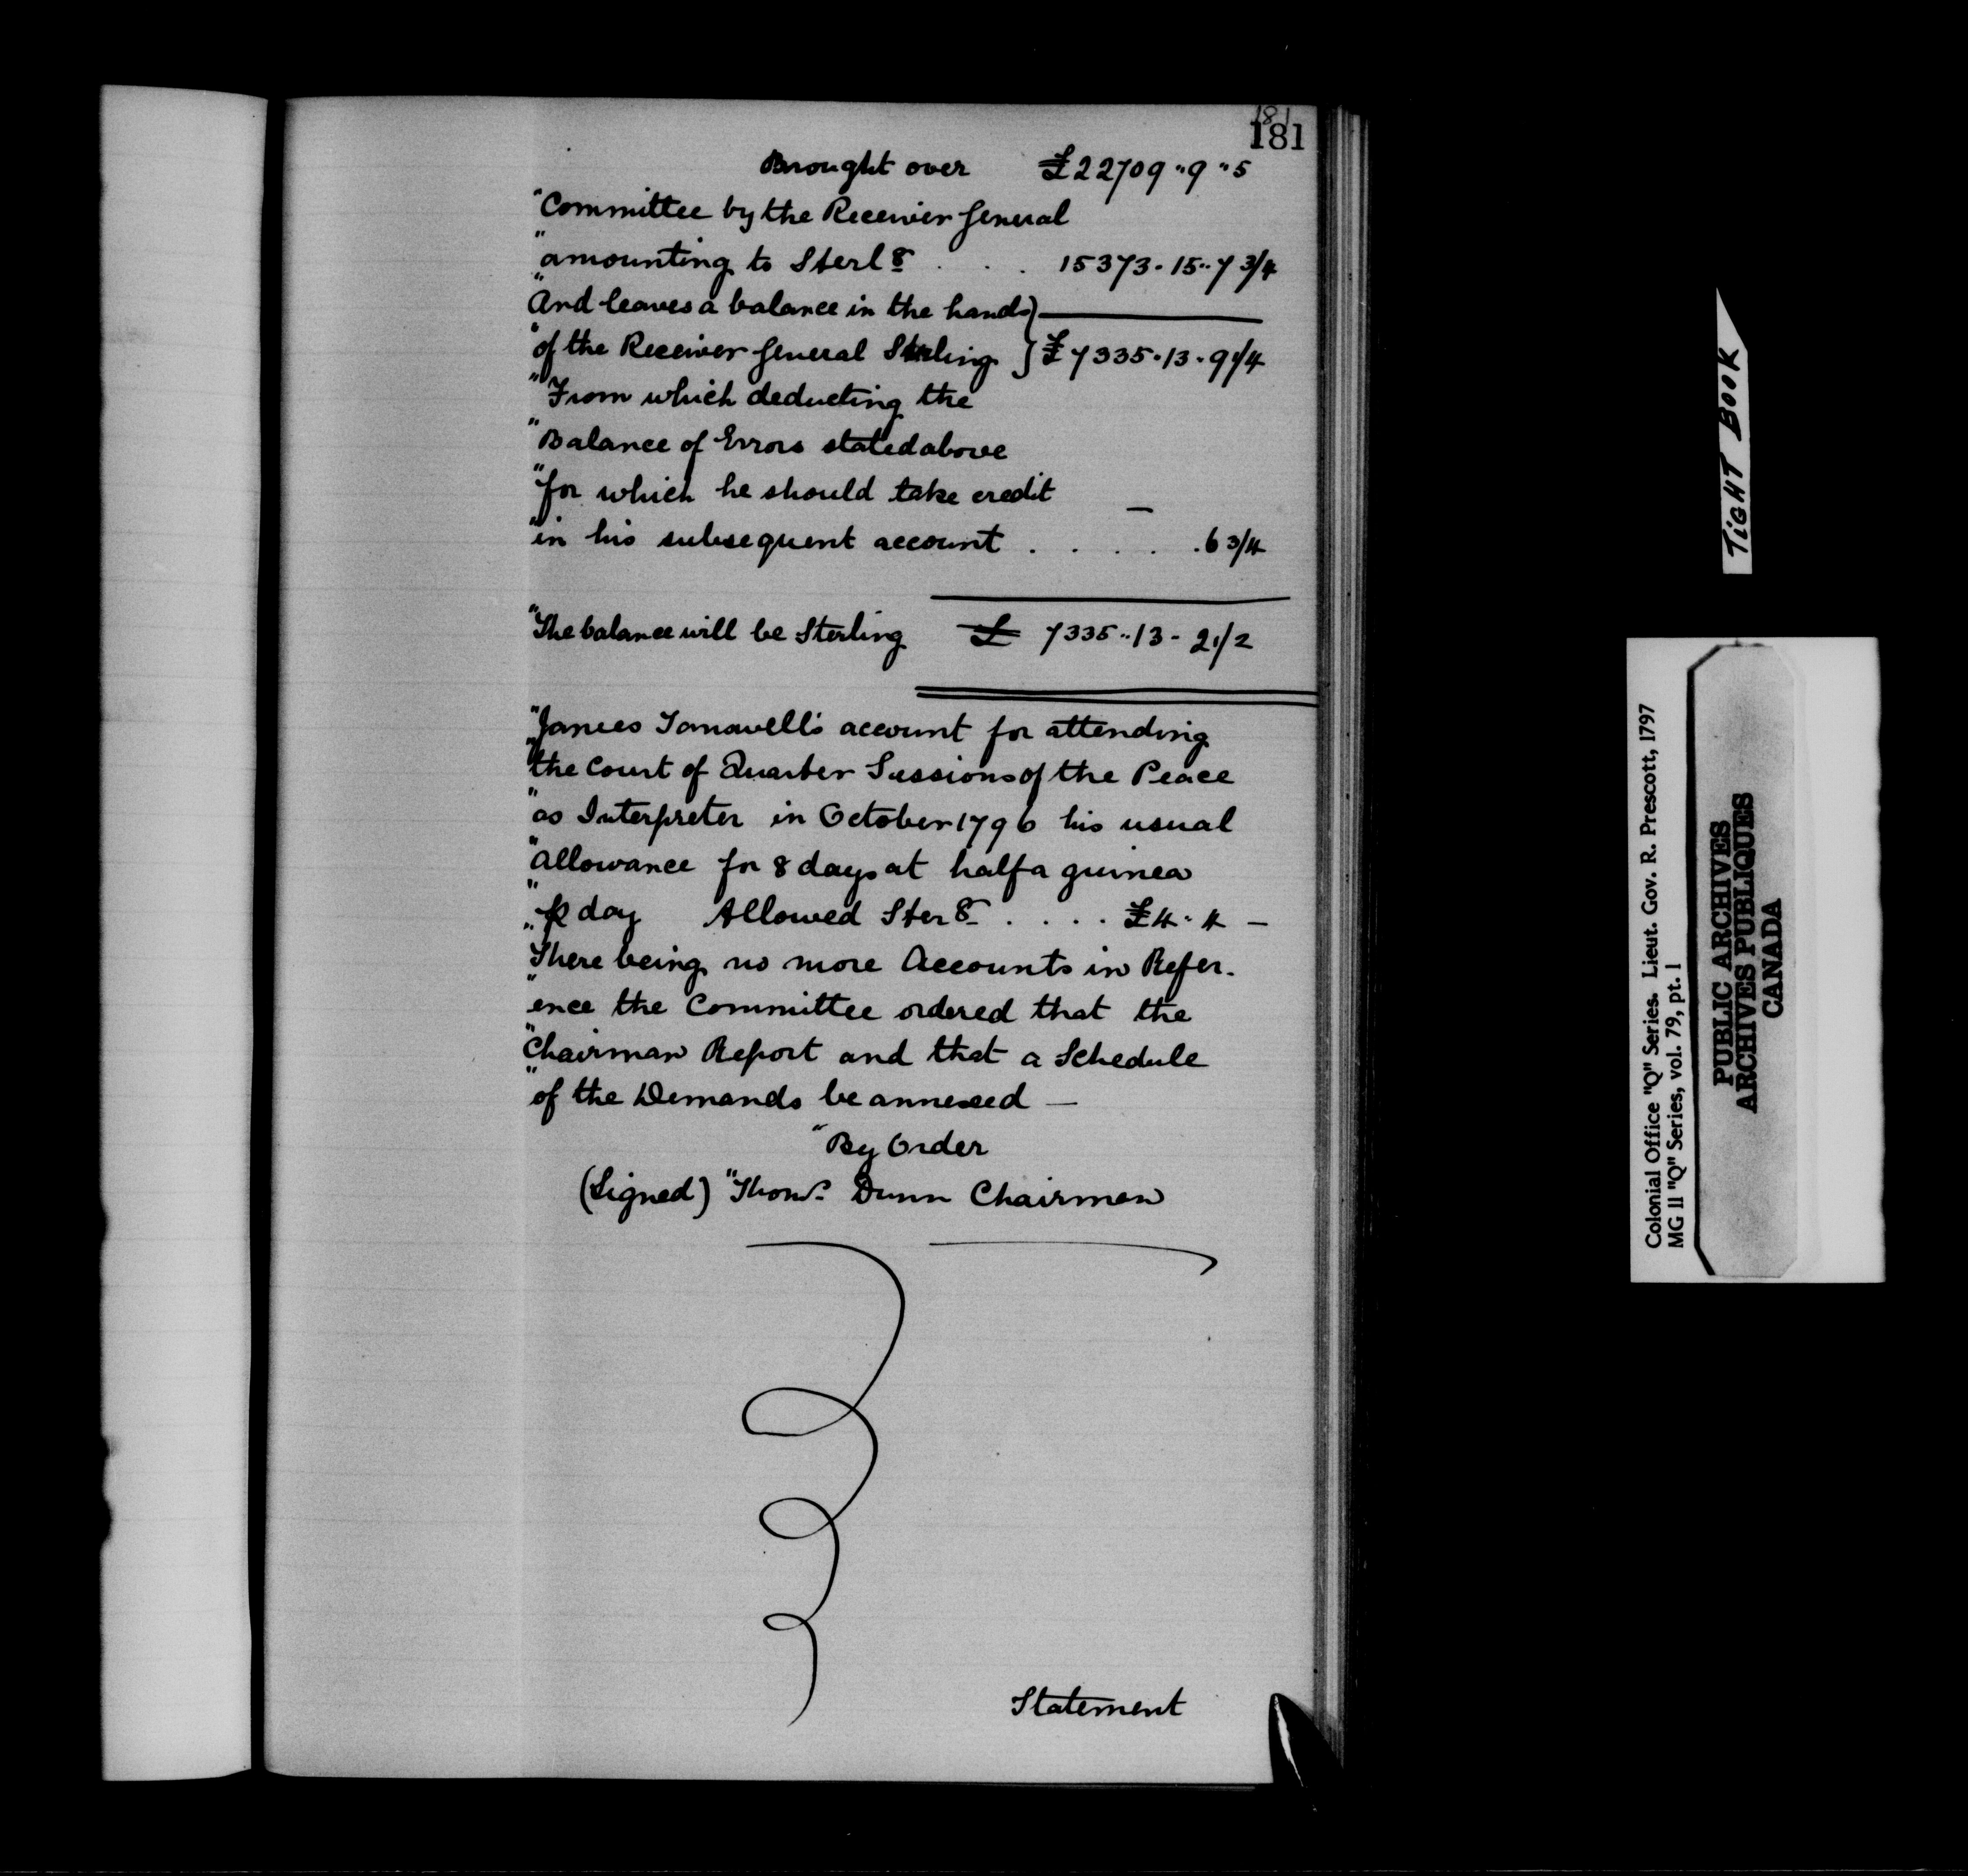 181
181
Brought over £22709 " 9 " 5
"Committee by the Receiver General
"amounting to Sterlg . . . 15373 - 15 .. 7 3/4
"And leaves a balance in the hands)
"of the Receiver General Sterling } £7335 - 13 - 9 1/4
"From which deducting the
"Balance of Errors stated above
"for which he should take credit —
"in his subsequent account . . . . . 6 3/4
"The balance will be Sterling £ 7335 .. 13 - 2 1/2
"James account for attending
"the Court of Quarter Sessions of the Peace
"as Interpreter in October 1796 his usual
"Allowance for 8 days at half a guinea
"⅌ day Allowed Sterg . . . . £4 - 4 —
"There being no more Accounts in Refer-
"ence the Committee ordered that the
"Chairman Report and that a Schedule
"of the Demands be annexed —
"By Order
(Signed) "Thoms Dunn Chairman
Statement
TIGHT BOOK
Colonial Office "Q" Series. Lieut. Gov. R. Prescott, 1797
MG 11 "Q" Series, vol. 79, pt. 1
PUBLIC ARCHIVES
ARCHIVES PUBLIQUES
CANADA